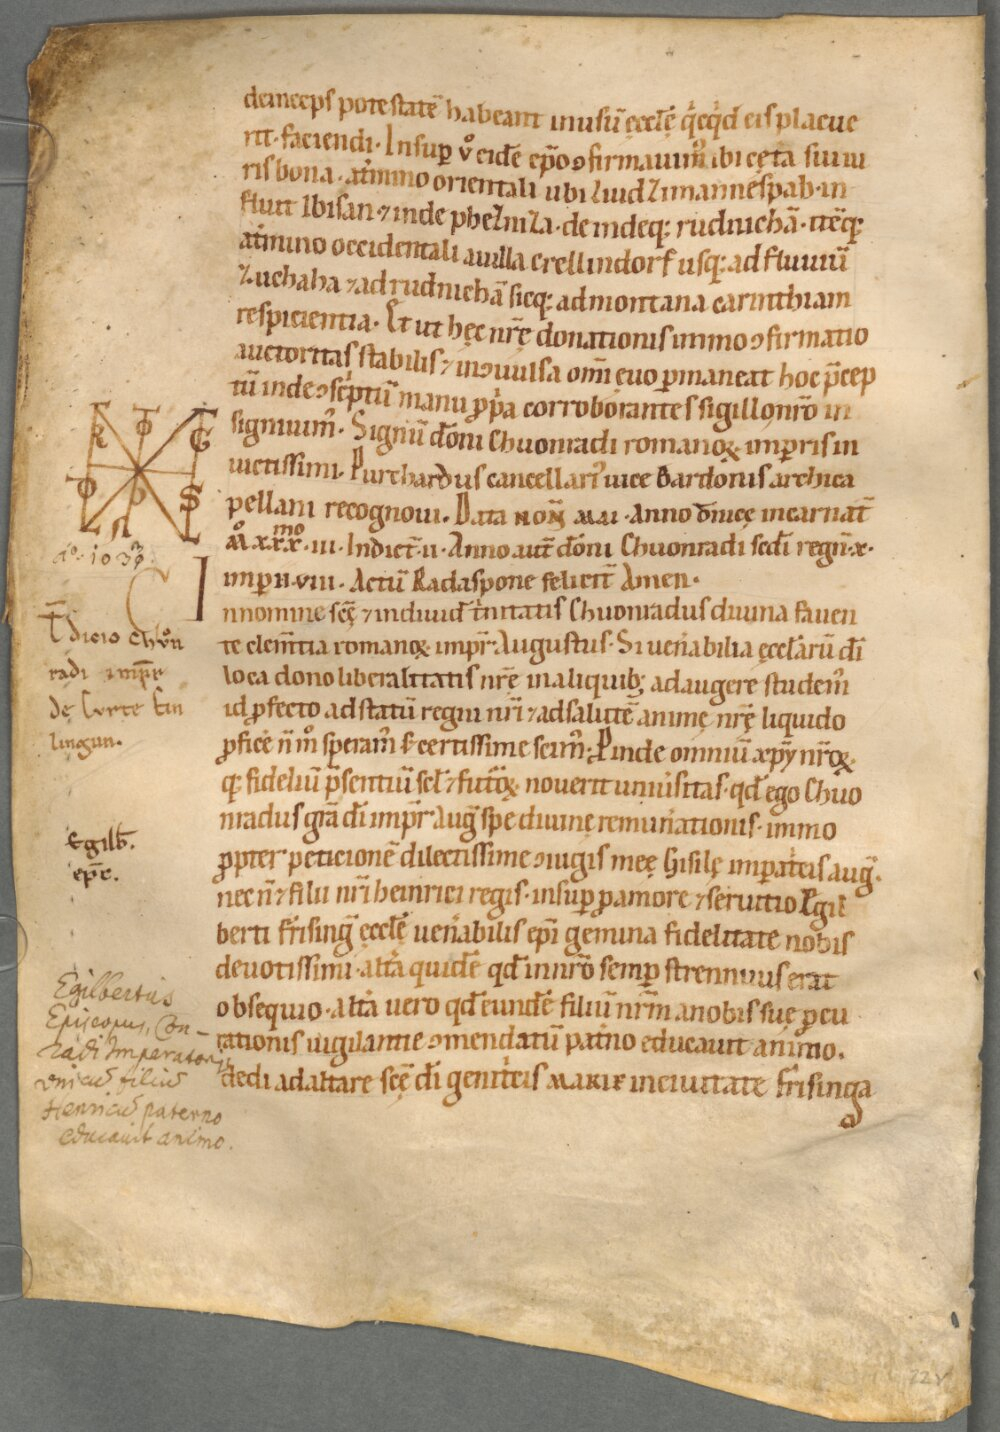 deinceps potestatē habeant inusū ęcclę̄ qͥcqͥd eis placue
rit · faciendi · Insup̱ v̊ eidē ep̄o ↄfirmauim᷒ ibi cęta sui iu
ris bona · atͥmino orientali ubi liudzimannespah · in
fluit Ibisan · ⁊ inde phezniza · de indeq; rudnichā · itēq;
atͥmino occidentali auilla crellindorf usq; ad fluuiū
zuchaha ⁊ ad rudnichā sicq; ad montana carinthiam
respicientia · Et ut hęc nr̄ę donationis immo ↄfirmatio
auctoritas stabilis ⁊ inↄuulsa omī euo p̱maneat hoc p̄cep
tū inde ↄscͥptū manu ꝓpͥa corroborantes sigillo nr̄o in
signium᷒ · Signū dōni Chuonradi romanoꝝ imp̱ris in
uictissimi · Purchardus cancellari᷒ uice Bardonis archica
pellani recognoui · Data NON̄ MAI · Anno dn̄icę incarnat̄
M̊ xxx̊ᵐᵒ · iii · Indict̄ · ii · Anno aut̄ dōni Chuonradi scdi regn̄ · x ·
imp̱ii · viii · Actū Radaspone felicit̄ Amen ·
A̅o̅ · 1033
In nomine scę̄ ⁊ indiuid̄ tͥnitatis Chuonradus diuina fauen
te clem̄tia romanoꝝ imp̄r Augustus · Si uen̄abilia ęccl̄arū dī
loca dono liberalitatis nr̄ę in aliquib; adaugere studem᷒
id ꝓfecto ad statū regni nr̄i ⁊ ad salutē animę nr̄ę liquido
ꝓficē n̄ m̊ speram᷒ & certissime scim᷒ · Pinde omniū xp̄i nr̄oꝝ
q; fideliū p̄sentiū scl̄ & futͥoꝝ nouerit uniu͛sitas · qd̄ ego Chuo
nradus gr̄a dī imp̄r Auḡ spe diuinę remun͛ationis · immo
ꝓpter peticionē dilectissime ↄiugis meę Gisilę imp̱atͥcis auḡ ·
nec n̄ & filii nr̄i heinrici regis · insup̱ ꝓ amore ⁊ seruitio Egil
berti frisinḡ ęcclę̄ uen͛abilis ep̄i gemina fidelitate nobis
deuotissimi · alt͛a quidē qd̄ in nr̄o semp̱ strennuus erat
obsequio · alt͛a uero qd̄ eundē filiū nr̄m a nobis suę ꝓcu
rationis uigilantie ↄmendatū pat͛no educauit animo ·
dedi ad altare scę̄ dī genitͥcis MARIE in ciuitate frisinga
Tͣdicio chuͦn
radi imp̄r
de Curte kin
lingun.
Egilb̄.
ep̄c.
Egilbertus
Episcopus, Con-
radi Imperatoris
unicū filiū
Henricū paterno
educauit animo.
22v